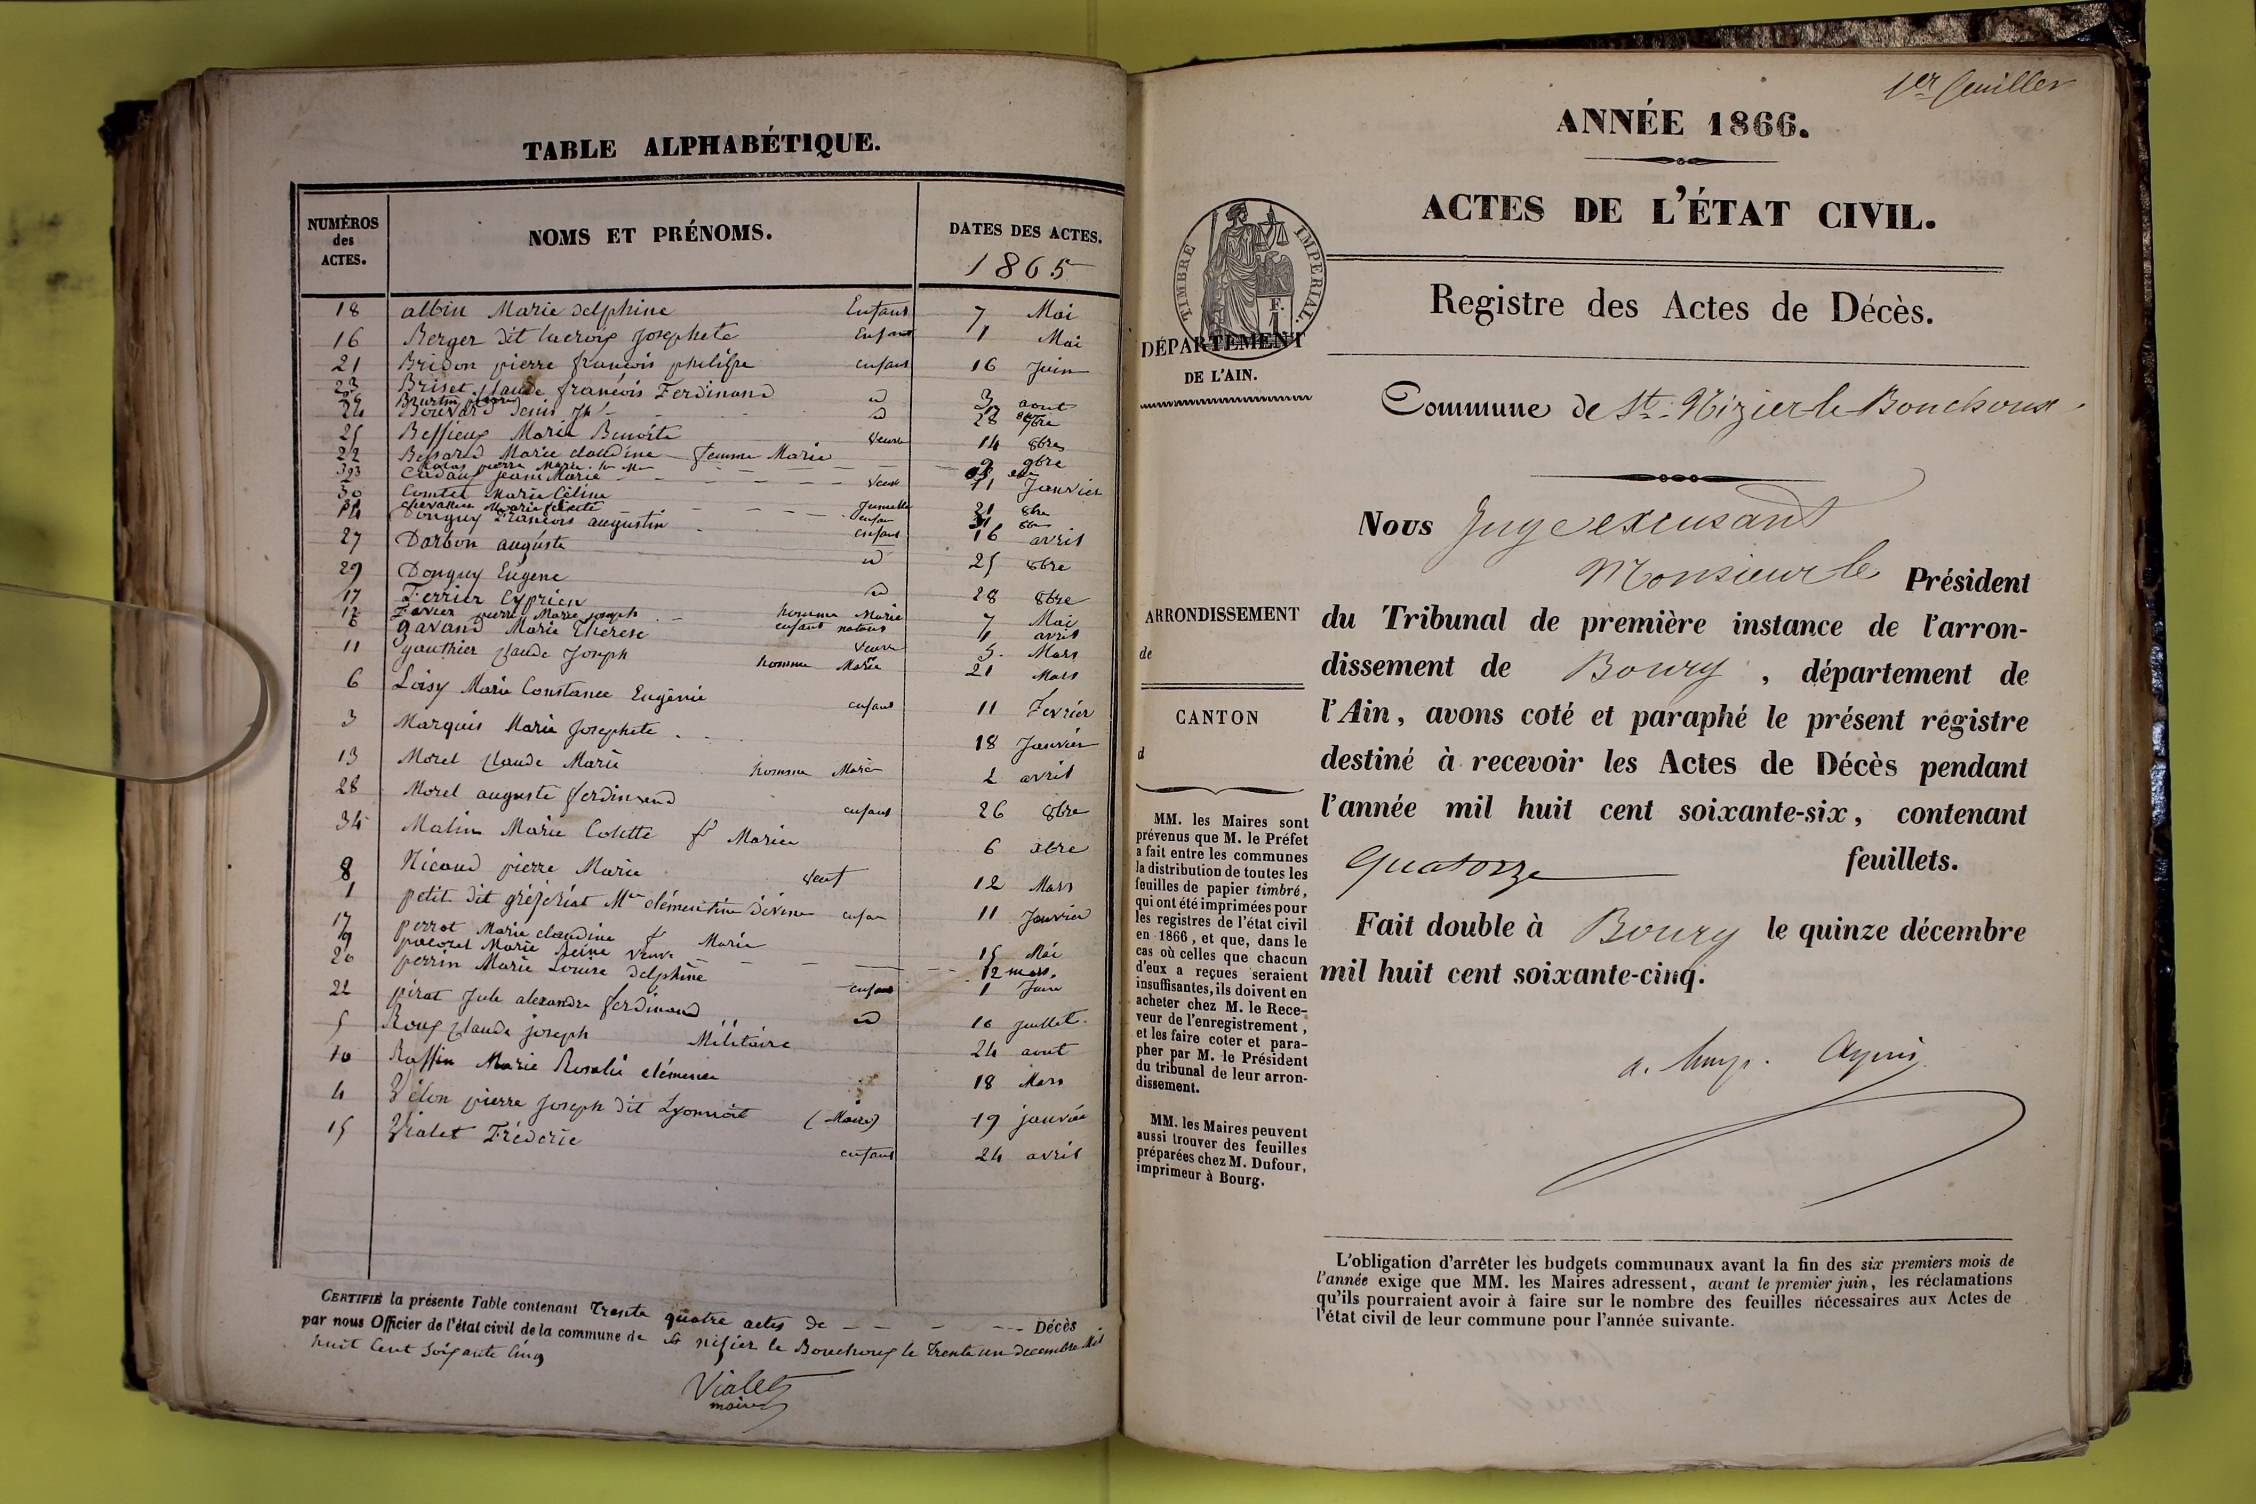 TABLE ALPHABÉTIQUE.
NUMÉROS des ACTES.
NOMS ET PRÉNOMS.
DATES DES ACTES.
1865
18 albin Marie delphine Enfant 7 Mai
16 Berger dit lacroix Josephete Enfant 1 Mai
21 Bridon pierre françois philipe enfant 16 Juin
23 Briset Claude françois Ferdinand id 3 aout
24 Bouvard Denis Jh id 28
25 Bessieux Marie Benoite veuve 14 8bre
Besard Marie claudine femme Marie 9 9bre
Cadaux Jean Marie veuf 11 Janvier
30 Comtet Marie Céline
chevallier Marie
14 Donguy François augustin enfant 16 avril
27 Darbon auguste id 25 8bre
29 Donguy Eugene id 28 8bre
17 Ferrier Cyprien 7 Mai
12 Favier pierre Marie joseph homme Marie avril
gavand Marie Therese veuve 5 Mars
11 gauthier Claude Joseph homme Marie 21 Mars
6 Loisy Marie Constance Eugènie enfant 11 Fevrier
3 Marquis Marie Josephete 18 Janvier
13 Morel Claude Marie homme Marie 2 avril
28 Morel auguste ferdinand enfant 26 8bre
34 Malin Marie Colette f Mariee 6 xbre
8 Nicoud pierre Marie veuf 12 Mars
1 petit dit gréfériat Mie clémentine enfan 11 Janvier
19 perrot Marie claudine f Marie 15 Mai
9 pacoret Marie Reine veuve 12 mars.
20 perrin Marie Louise delphine enfant 1 Juin
22 pirat Jule alexandre ferdinand id 10 juillet
5 Roux Claude joseph Militaire 24 aout
10 Ruffin Marie Rosalie clémence 18 Mars
4 Vélon pierre Joseph dit Lyonnoit (Marié) 19 janvier
15 Vialet Fréderic enfant 24 avril
CERTIFIÉ la présente Table contenant Trente quatre actes de Décès
par nous Officier de l'état civil de la commune de St nisier le Bouchoux le Trente un decembre Mil
huit Cent Soixante Cinq
Vialet
maire
1er feuillet
ANNÉE 1866.
ACTES DE L'ÉTAT CIVIL.
TIMBRE IMPERIAL.
1 F.
Registre des Actes de Décès.
DÉPARTEMENT
DE L'AIN.
Commune de St. Nizier le Bouchoux
Nous Juge excusant
Monsieur le Président
du Tribunal de première instance de l'arron-
dissement de Bourg, département de
l'Ain, avons coté et paraphé le présent régistre
destiné à recevoir les Actes de Décès pendant
l'année mil huit cent soixante-six, contenant
quatorze feuillets.
Fait double à Bourg le quinze décembre
mil huit cent soixante-cinq.
ARRONDISSEMENT
de
CANTON
d
MM. les Maires sont
prévenus que M. le Préfet
a fait entre les communes
la distribution de toutes les
feuilles de papier timbré,
qui ont été imprimées pour
les registres de l'état civil
en 1866, et que, dans le
cas où celles que chacun
d'eux a reçues seraient
insuffisantes, ils doivent en
acheter chez M. le Rece-
veur de l'enregistrement,
et les faire coter et para-
pher par M. le Président
du tribunal de leur arron-
dissement.
MM. les Maires peuvent
aussi trouver des feuilles
préparées chez M. Dufour,
imprimeur à Bourg.
L'obligation d'arrêter les budgets communaux avant la fin des six premiers mois de
l'année exige que MM. les Maires adressent, avant le premier juin, les réclamations
qu'ils pourraient avoir à faire sur le nombre des feuilles nécessaires aux Actes de
l'état civil de leur commune pour l'année suivante.